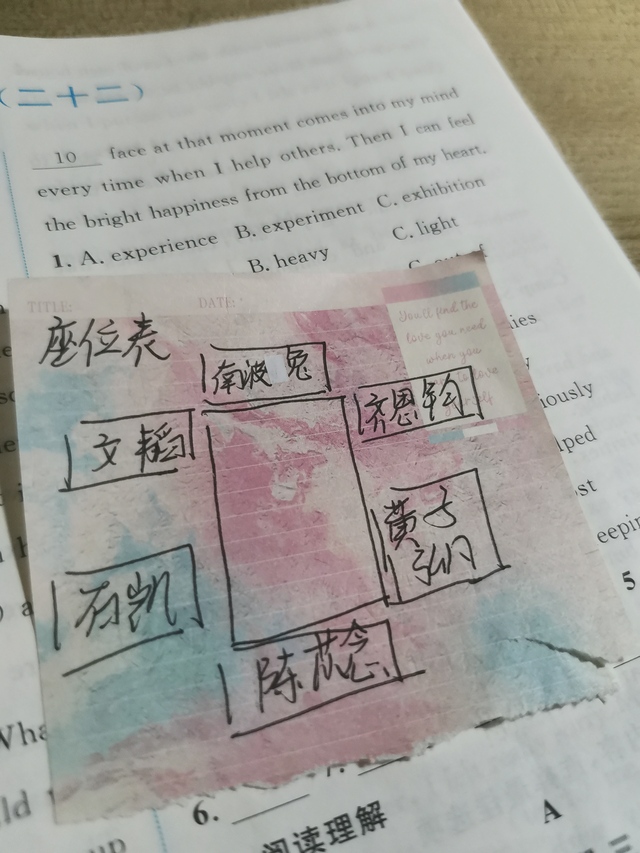 （二十二）
10 face at that moment comes into my mind
every time when I help others. Then I can feel
the bright happiness from the bottom of my heart.
1. A. experience B. experiment C. exhibition
B. heavy C. light
TITLE: DATE:
You'll find the
love you need
when you
座位表
南波兔
齐思钧
文韬
黄子
弘凡
石凯
陈莀念
iously
lped
st
eepin
5
6.
阅读理解
A